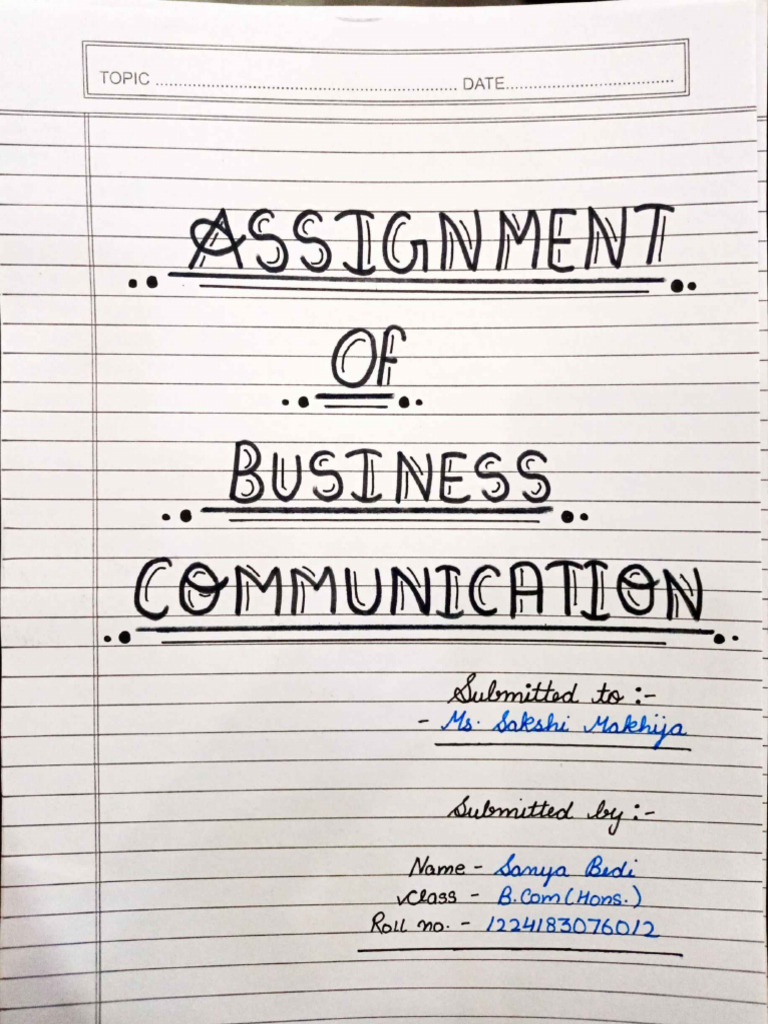 TOPIC ........................................................ DATE................................
ASSIGNMENT
Of
BUSINESS
COMMUNICATION
Submitted to :-
- Ms. Sakshi Makhija
Submitted by :-
Name - Sanya Bedi
Class - B.Com (Hons.)
Roll no. - 1224183076012